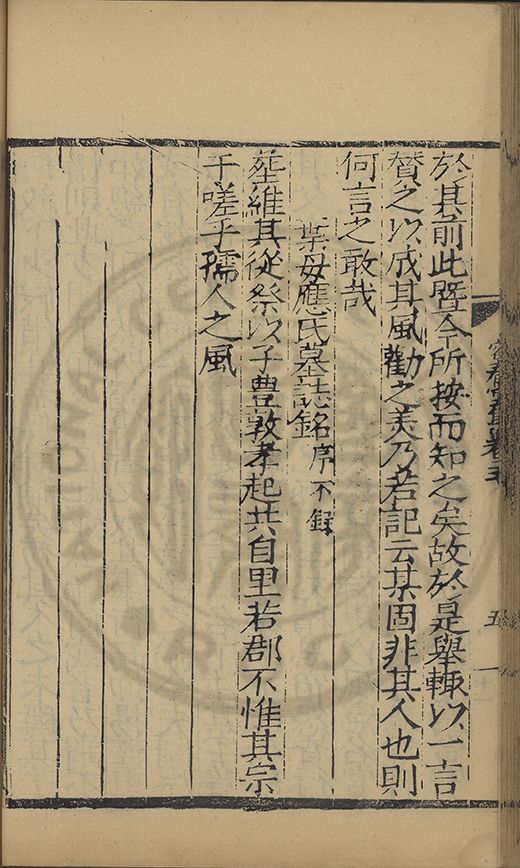 於其前此暨今所按而知之矣故於是舉輙以一言
賛之以成其風勸之美乃若記云某固非其人也則
何言之敢哉
葉母應氏墓誌銘序不錄
塟維其從祭以子豊敦孝起共自里若郡不惟其宗
于嗟乎孺人之風
五